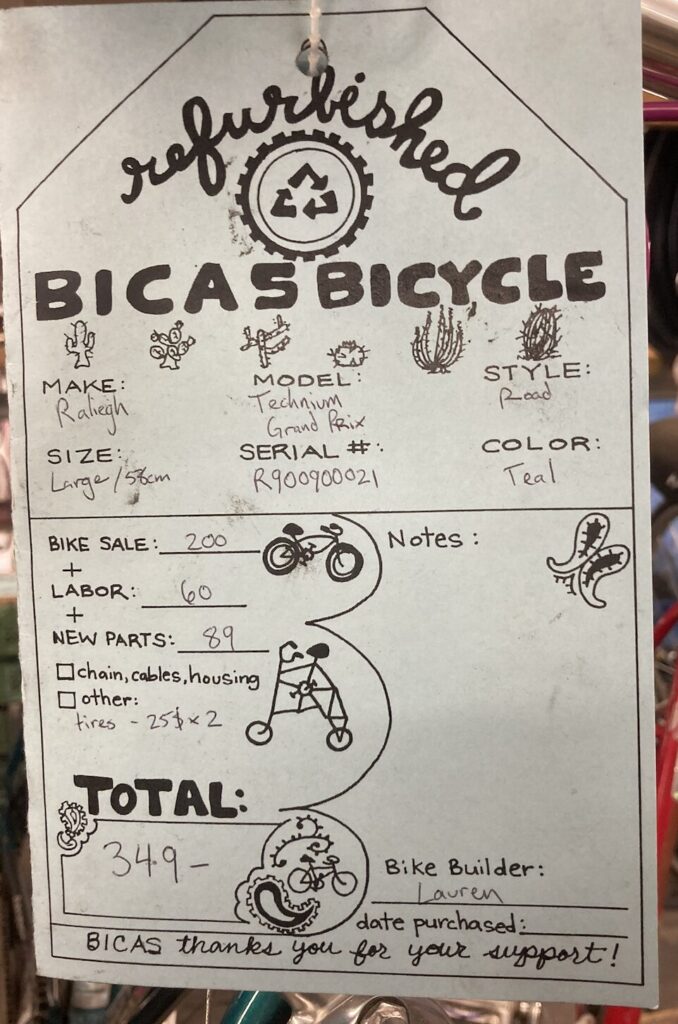 refurbished
BICAS BICYCLE
MAKE:
Raliegh
MODEL:
Technium
Grand Prix
STYLE:
Road
SIZE:
Large/58cm
SERIAL #:
R900900021
COLOR:
Teal
BIKE SALE: 200
+
LABOR: 60
+
NEW PARTS: 89
chain, cables, housing
other:
tires - 25$ x 2
TOTAL:
349-
Notes:
Bike Builder:
Lauren
date purchased:
BICAS thanks you for your support!